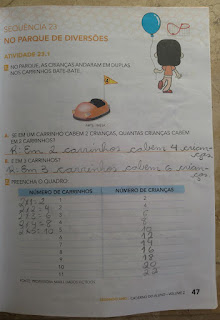 SEQUÊNCIA 23
NO PARQUE DE DIVERSÕES
ATIVIDADE 23.1
NO PARQUE, AS CRIANÇAS ANDARAM EM DUPLAS
NOS CARRINHOS BATE-BATE.
A. SE EM UM CARRINHO CABEM 2 CRIANÇAS, QUANTAS CRIANÇAS CABEM
EM 2 CARRINHOS?
R: Em 2 carrinhos cabem 4 crian-
ças.
B. E EM 3 CARRINHOS?
R: Em 3 carrinhos cabem 6 crian-
ças
PREENCHA O QUADRO:
NÚMERO DE CARRINHOS NÚMERO DE CRIANÇAS
1 2
2 4
3 6
4 8
5 10
6 12
7 14
8 16
9 18
10 20
11 22
47